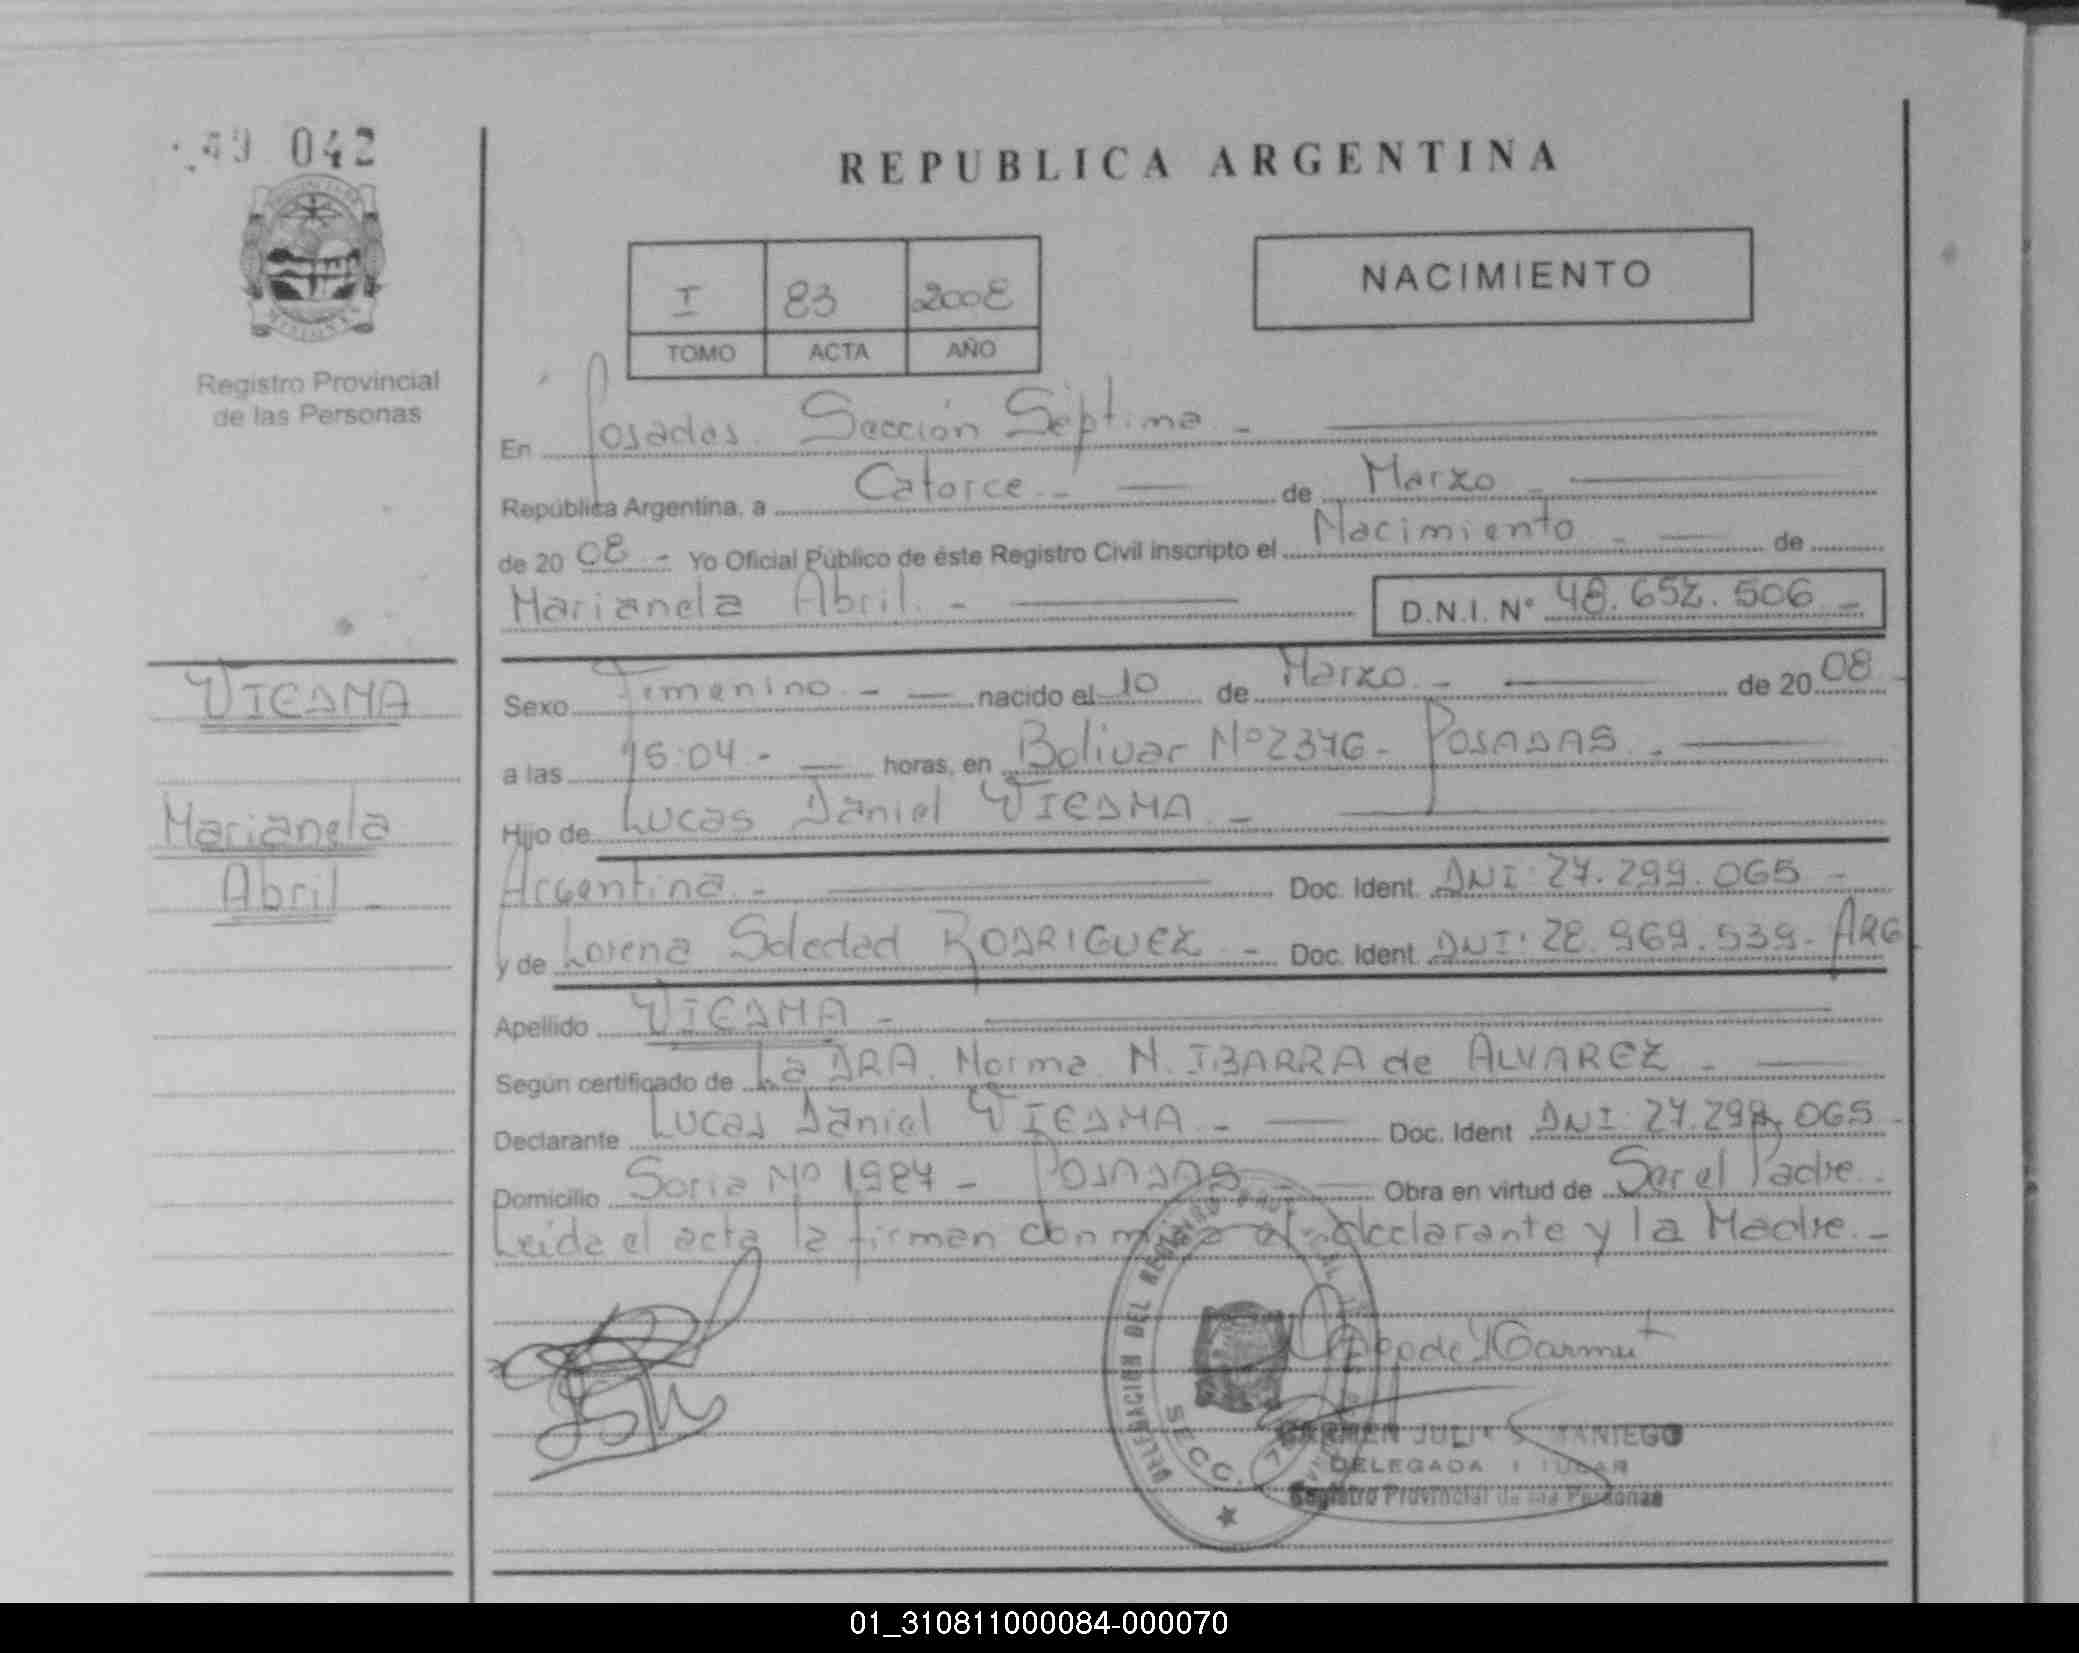 49 042
Registro Provincial
de las Personas
REPUBLICA ARGENTINA
I 83 2008
TOMO ACTA AÑO
NACIMIENTO
En Posadas. Sección Séptima -
República Argentina, a Catorce.- de Marzo -
de 20 08 - Yo Oficial Público de éste Registro Civil inscripto el Nacimiento - de
Marianela Abril. - D.N.I. N° 48.652.506 -
VIEDMA
Marianela
Abril -
Sexo Femenino. - nacido el 10 de Marzo. - de 20 08 -
a las 15:04 - horas, en Bolivar Nº 2376 - POSADAS. -
Hijo de Lucas Daniel VIEDMA -
Argentina. - Doc. Ident. DNI: 27.299.065 -
y de Lorena Soledad RODRIGUEZ - Doc. Ident. DNI: 28.969.539 - ARG
Apellido VIEDMA -
Según certificado de La DRA. Norma N. IBARRA de ALVAREZ -
Declarante Lucas Daniel VIEDMA - Doc. Ident DNI: 27.299.065 -
Domicilio Soria Nº 1987 - POSADAS - Obra en virtud de Ser el Padre.
Leida el acta la firman conmigo el declarante y la Madre. -
DELEGACION DEL
SECC. 7
CARMEN JULIA
DELEGADA
Registro Provincial de las Personas
01_310811000084-000070